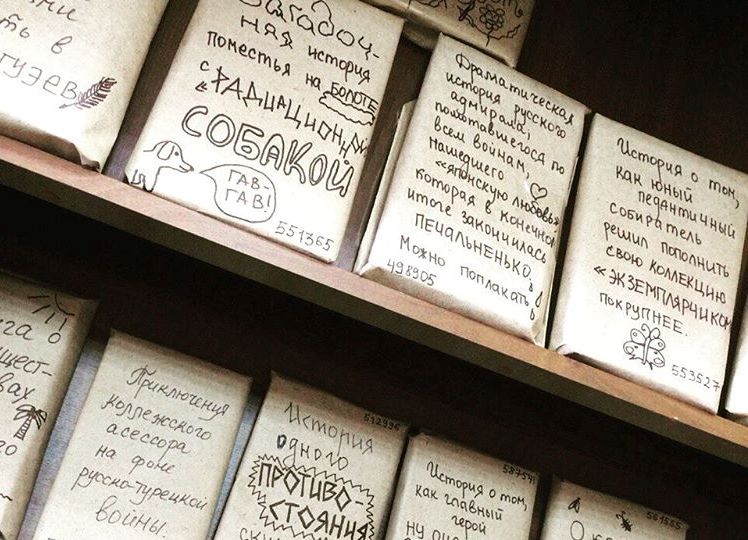 ть в
Загадоч-
ная история
поместья на болоте
с «радиационной
СОБАКОЙ
ГАВ-
ГАВ!
551365
Драматическая
история русского
адмирала,
помотавшегося по
всем войнам,
нашедшего
«японскую любовь»
которая в конечном
итоге закончилась
ПЕЧАЛЬНЕНЬКО.
Можно поплакать
498905
История о том,
как юный
педантичный
собиратель
решил пополнить
свою коллекцию
«ЭКЗЕМПЛЯРЧИКОМ
ПОКРУПНЕЕ.
553527
Приключения
коллежского
асессора
на фоне
русско-турецкой
войны.
512996
История
одного
ПРОТИВО-
СТОЯНИЯ
587541
История о том,
как главный
герой
561555
О